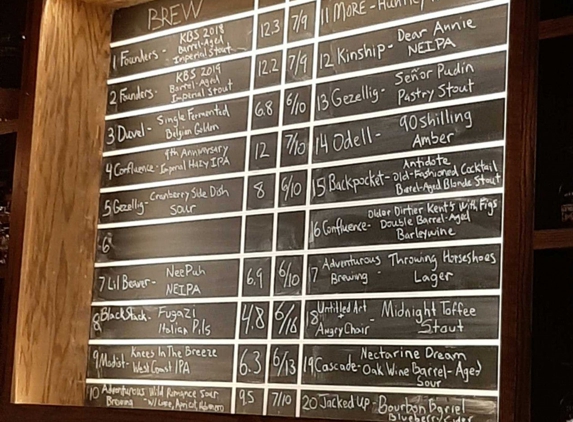 BREW
1 Founders - KBS 2018 12.3 7/9
Barrel-Aged
Imperial Stout
2 Founders - KBS 2019 12.2 7/9
Barrel-Aged
Imperial Stout
3 Duvel - Single Fermented 6.8 6/10
Belgian Golden
4 Confluence - 4th Anniversary 12 7/10
Imperial Hazy IPA
5 Gezellig - Cranberry Side Dish 8 6/10
Sour
6
7 Lil Beaver - NeePuh 6.9 6/10
NEIPA
8 BlackStack - Fugazi 4.8 6/16
Italian Pils
9 Modist - Knees In The Breeze 6.3 6/13
West Coast IPA
10 Adventurous Wild Romance Sour 9.5 7/10
Brewing - w/ Lime, Apricot,
11 MORE -
12 Kinship - Dear Annie
NEIPA
13 Gezellig - Señor Pudin
Pastry Stout
14 Odell - 90 Shilling
Amber
15 Backpocket - Antidote
Old-Fashioned Cocktail
Barrel-Aged Blonde Stout
16 Confluence - Older Dirtier Kent's With Figs
Double Barrel-Aged
Barleywine
17 Adventurous Throwing Horseshoes
Brewing - Lager
18 Untitled Art + Midnight Toffee
Angry Chair - Stout
19 Cascade - Nectarine Dream
Oak Wine Barrel-Aged
Sour
20 Jacked Up - Bourbon Barrel
Blueberry Cider